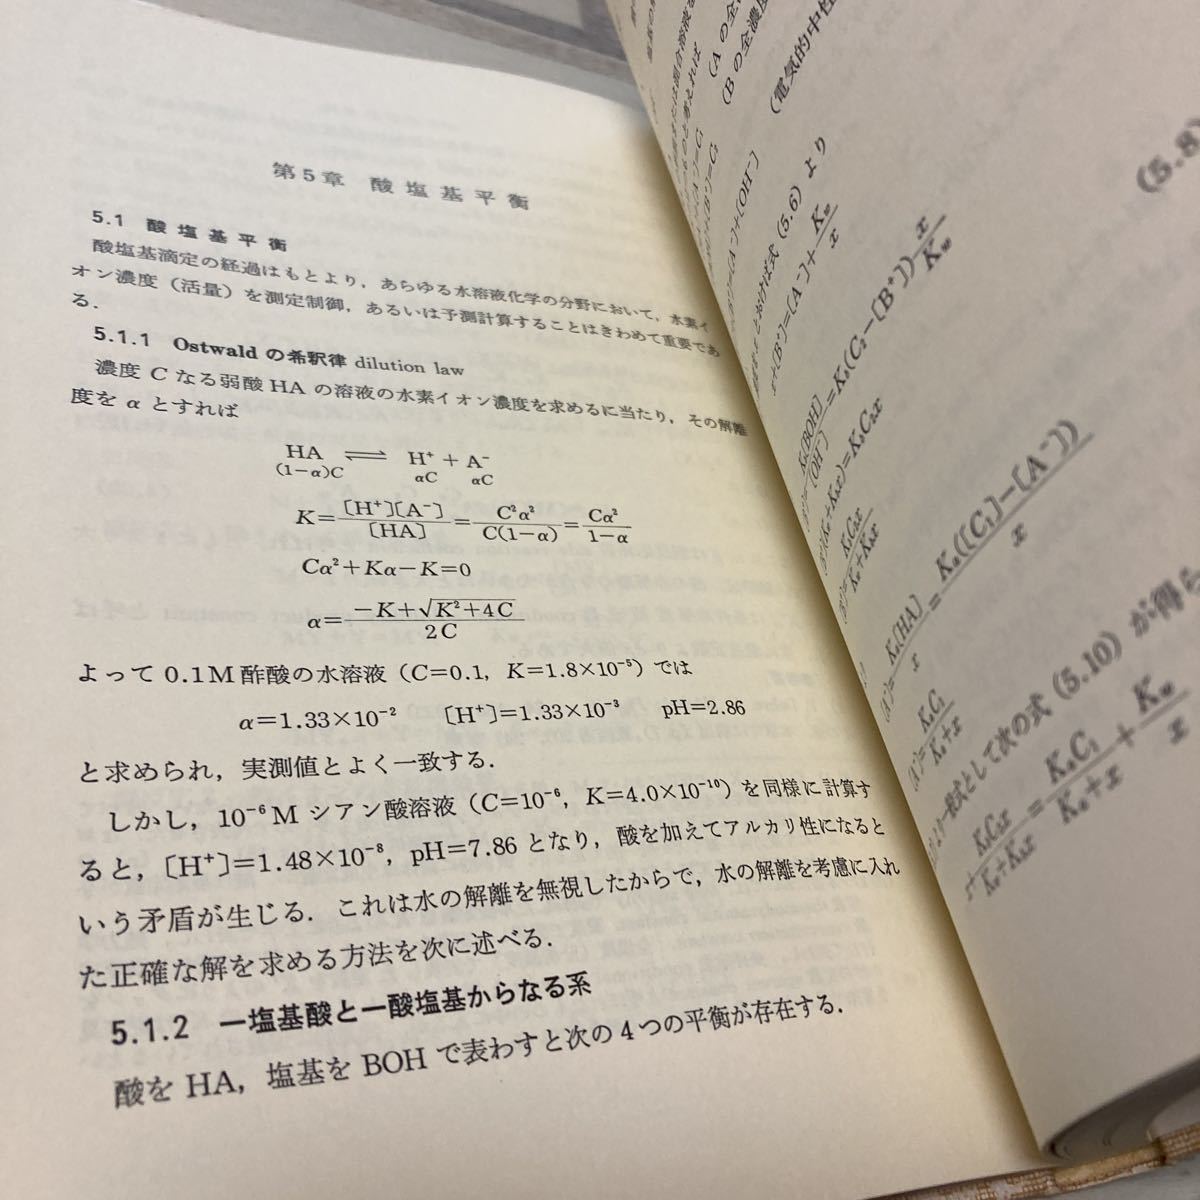 第5章 酸塩基平衡
5.1 酸塩基平衡
酸塩基滴定の経過はもとより，あらゆる水溶液化学の分野において，水素イ
オン濃度（活量）を測定制御，あるいは予測計算することはきわめて重要であ
る．
5.1.1 Ostwald の希釈律 dilution law
濃度 C なる弱酸 HA の溶液の水素イオン濃度を求めるに当たり，その解離
度を α とすれば
HA ⇌ H⁺ + A⁻
(1−α)C αC αC
K=[H⁺][A⁻]/[HA]=C²α²/C(1−α)=Cα²/1−α
Cα²+Kα−K=0
α=−K+√K²+4C/2C
よって 0.1M 酢酸の水溶液（C=0.1，K=1.8×10⁻⁵）では
α=1.33×10⁻² [H⁺]=1.33×10⁻³ pH=2.86
と求められ，実測値とよく一致する．
しかし，10⁻⁶M シアン酸溶液（C=10⁻⁶，K=4.0×10⁻¹⁰）を同様に計算す
ると，[H⁺]=1.48×10⁻⁸，pH=7.86 となり，酸を加えてアルカリ性になると
いう矛盾が生じる．これは水の解離を無視したからで，水の解離を考慮に入れ
た正確な解を求める方法を次に述べる．
5.1.2 一塩基酸と一酸塩基からなる系
酸を HA，塩基を BOH で表わすと次の4つの平衡が存在する．
(A の全濃
(B の全濃度
(電気的中性
[A⁻]+[OH⁻]
とおけば式 (5.6) より
x+[B⁺]=[A⁻]+Kw/x
(5.8)
Kb[BOH]/[OH⁻]=Kb(C₂−[B⁺])x/Kw
[B⁺](Kw+Kbx)=KbC₂x
[B⁺]=KbC₂x/Kw+Kbx
[A⁻]=Ka[HA]/x=Ka([C₁]−[A⁻])/x
[A⁻]=KaC₁/Ka+x
一般式として次の式 (5.10) が得ら
x+KbC₂x/Kw+Kbx=KaC₁/Ka+x+Kw/x